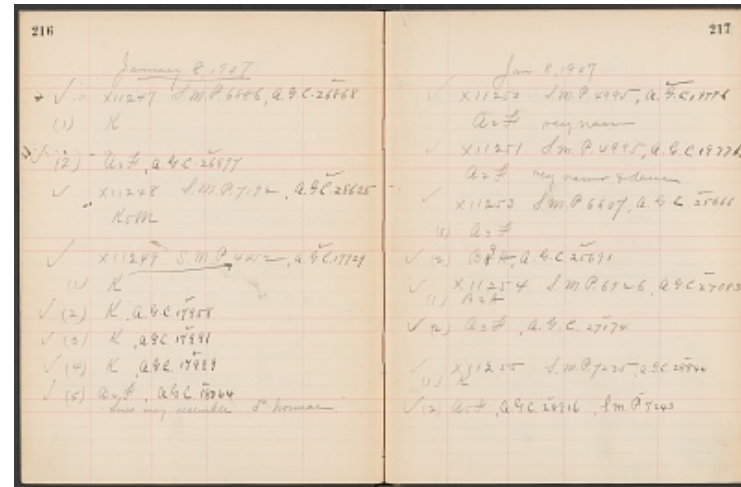 216
January 8, 1907
✓ X11247 S.M.P. 6886, A.G.C. 26868
(1) K
✓ (2) A2F, A.G.C. 26877
✓ X11248 S.M.P. 7192, A.G.C. 28625
K5M
✓ X11249 S.M.P. 4452, A.G.C. 17929
(1) K
✓ (2) K, A.G.C. 17958
✓ (3) K, A.G.C. 17991
✓ (4) K, A.G.C. 17999
✓ (5) A.G.C. 18064
Lines may resemble
217
Jan. 8, 1907
✓ X11250 S.M.P. 4995, A.G.C. 19776
A2F very narrow
✓ X11251 S.M.P. 4995, A.G.C. 19776
A2F very narrow & dense
✓ X11253 S.M.P. 6607, A.G.C. 25666
(1) A3F
✓ (2) A.G.C. 25691
✓ X11254 S.M.P. 6926, A.G.C. 27083
(1) A2F
✓ (2) A3F, A.G.C. 27174
✓ X11255 S.M.P. 7235, A.G.C. 28844
(1) K
✓ (2) A5F, A.G.C. 28916, S.M.P. 7243